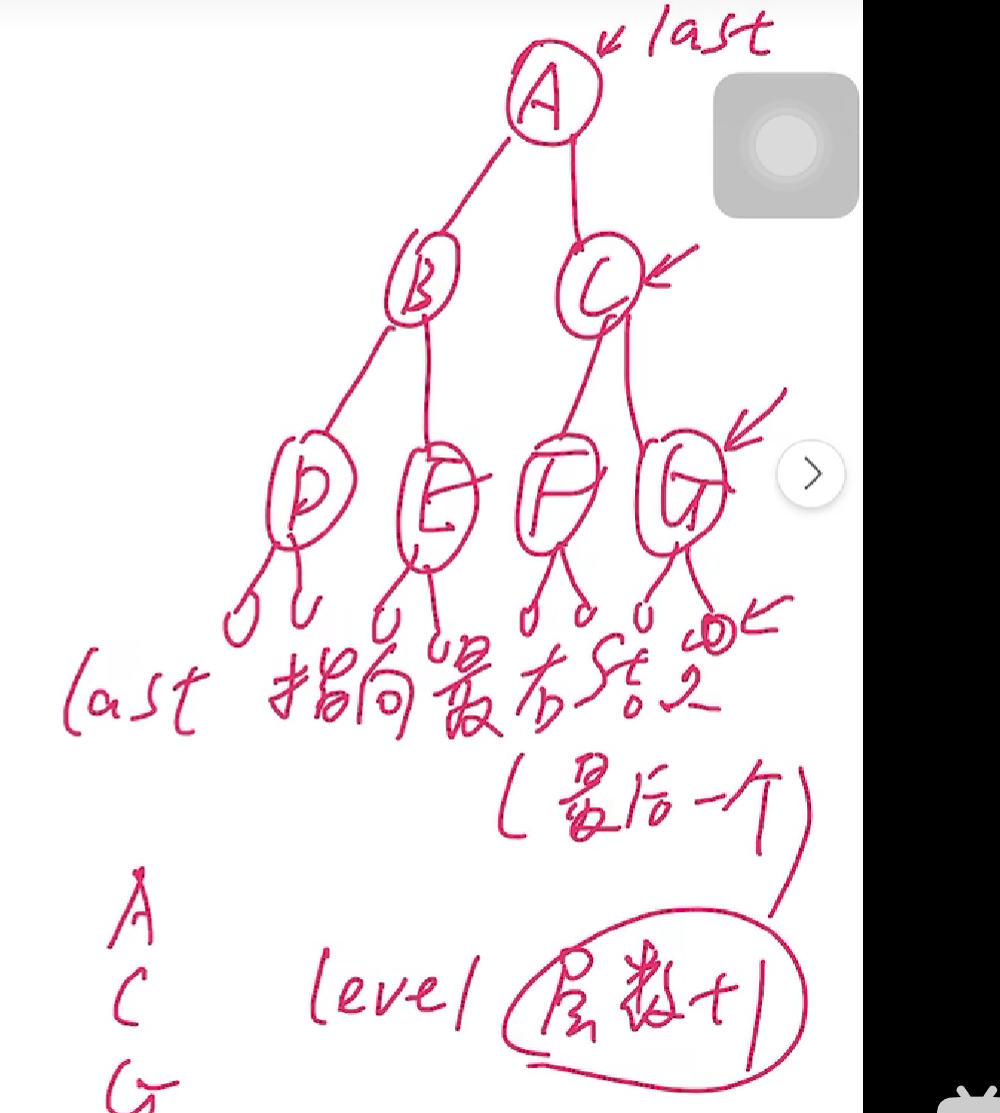 last
A
B C
D E F G
last 指向最右结点
(最后一个)
A
C level 层数+1
G